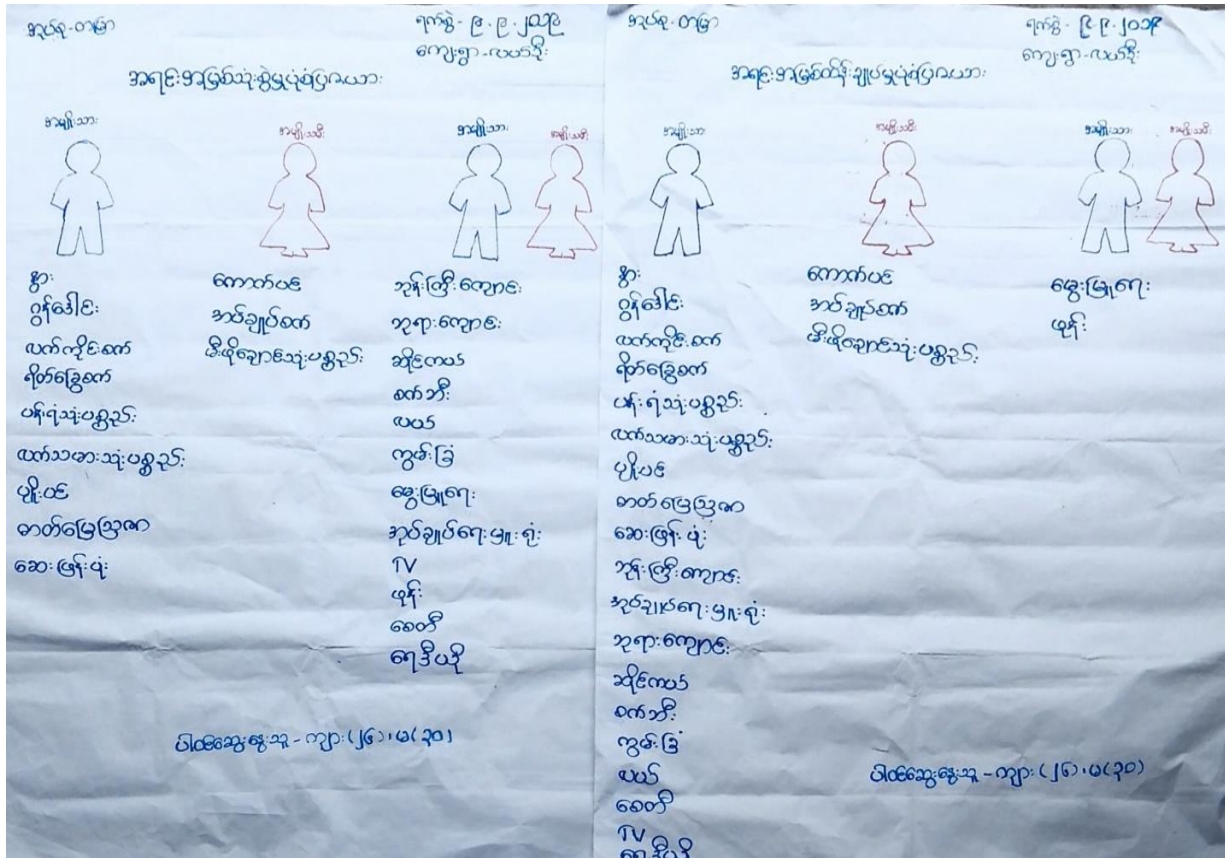 အုပ်စု - တမြာ
ရက်စွဲ - ၉.၉.၂၀၁၉
ကျေးရွာ - လယ်ဒီး
အရင်းအမြစ်သုံးစွဲမှုပုံစံပြဇယား
အမျိုးသား
အမျိုးသမီး
အမျိုးသား
အမျိုးသမီး
နွား
ဂွန်ဒေါင်း
လက်ကိုင်စက်
ရိတ်ခြွေစက်
ပန်းရံသုံးပစ္စည်း
လက်သမားသုံးပစ္စည်း
ပျိုးပင်
ဓာတ်မြေသြဇာ
ဆေးဖြန်းပုံး
ကောက်ပင်
အပ်ချုပ်စက်
မီးဖိုချောင်သုံးပစ္စည်း
ဘုန်းကြီးကျောင်း
ဘုရားကျောင်း
ဆိုင်ကယ်
စက်ဘီး
လယ်
ကွမ်းခြံ
မွေးမြူရေး
အုပ်ချုပ်ရေးမှူးရုံး
TV
ဖုန်း
စေတီ
ရေဒီယို
ပါဝင်ဆွေးနွေးသူ - ကျား (၂၆)၊ မ (၃၀)
အုပ်စု - တမြာ
ရက်စွဲ - ၉.၉.၂၀၁၉
ကျေးရွာ - လယ်ဒီး
အရင်းအမြစ်ထိန်းချုပ်မှုပုံစံပြဇယား
အမျိုးသား
အမျိုးသမီး
အမျိုးသား
အမျိုးသမီး
နွား
ဂွန်ဒေါင်း
လက်ကိုင်စက်
ရိတ်ခြွေစက်
ပန်းရံသုံးပစ္စည်း
လက်သမားသုံးပစ္စည်း
ပျိုးပင်
ဓာတ်မြေသြဇာ
ဆေးဖြန်းပုံး
ဘုန်းကြီးကျောင်း
အုပ်ချုပ်ရေးမှူးရုံး
ဘုရားကျောင်း
ဆိုင်ကယ်
စက်ဘီး
ကွမ်းခြံ
လယ်
စေတီ
TV
ရေဒီယို
ကောက်ပင်
အပ်ချုပ်စက်
မီးဖိုချောင်သုံးပစ္စည်း
မွေးမြူရေး
ဖုန်း
ပါဝင်ဆွေးနွေးသူ - ကျား (၂၆)၊ မ (၃၀)